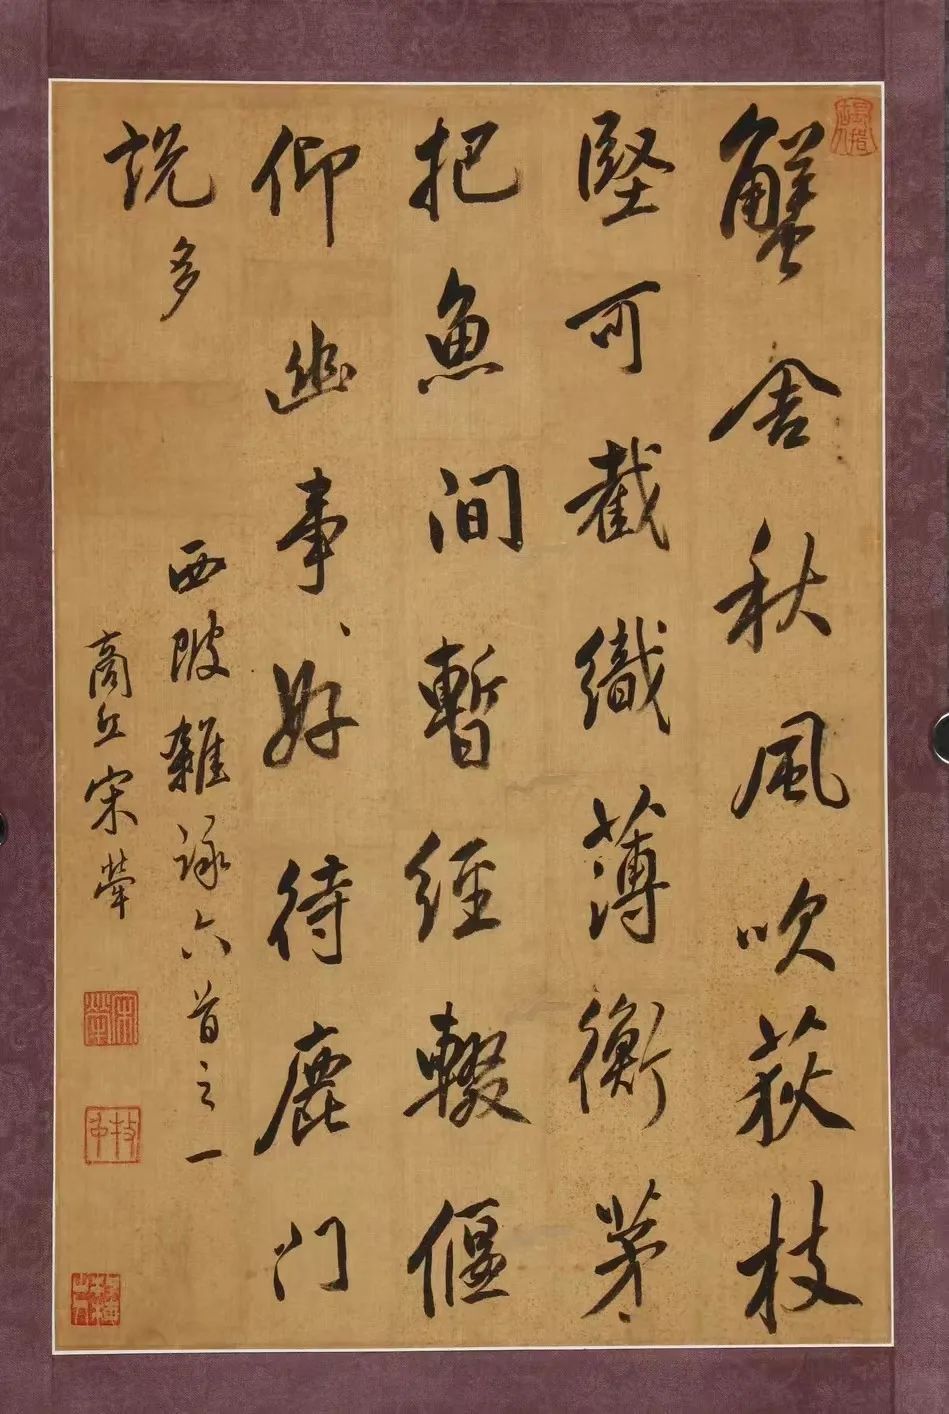 蟹舍秋風吹荻枝
堅可截織薄衡茅
把魚間暫經輟偃
仰幽事好待鹿門
說多
西陂雜詠六首之一
商丘宋犖
宋犖
牧中